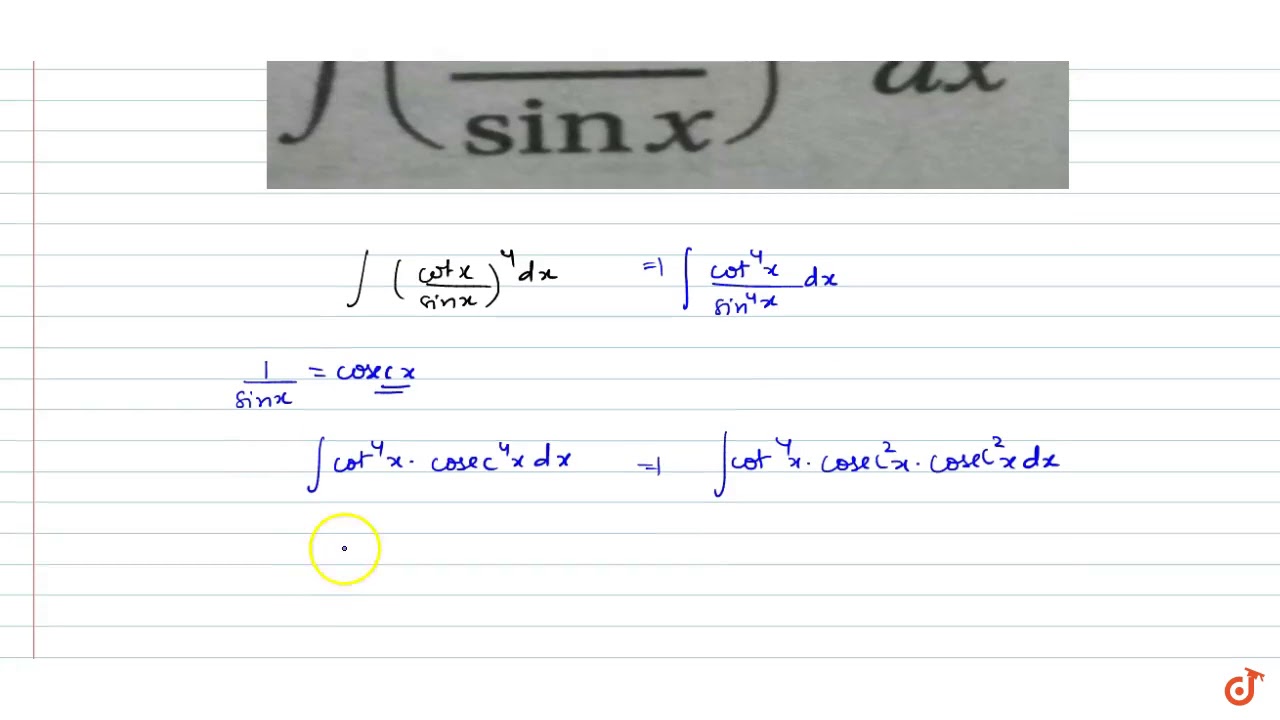 ∫ ( sin x ) dx
∫ (cot x / sin x)⁴ dx ⇒ ∫ cot⁴x / sin⁴x dx
1 / sin x = cosec x
∫ cot⁴x · cosec⁴x dx ⇒ ∫ cot⁴x · cosec²x · cosec²x dx